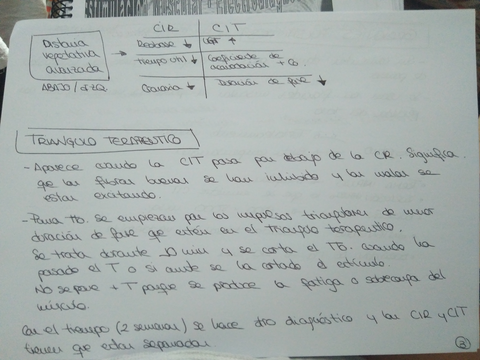 CIR | CIT
Distonia vegetativa avanzada
Reobase ↓ | UGT ↑
Tiempo útil ↓ | Coeficiente de acomodación + Co.
ABAJO / IZQ.
Cronaxia ↓ | Duración de fase ↓
TRIANGULO TERAPEUTICO
- Aparece cuando la CIT pasa por debajo de la CIR. Significa
que las fibras buenas se han inhibido y las malas se
están excitando.
- Para tto. se empiezan por los impulsos triangulares de menor
duración de fase que estén en el Triángulo terapéutico.
Se trata durante min y se corta el Tto. cuando ha
pasado el T o si antes se ha cortado el estímulo.
No se pone + T porque se produce la fatiga o sobrecarga del
músculo.
Con el tiempo (2 semanas) se hace otro diagnóstico y las CIR y CIT
tienen que estar separadas.
②